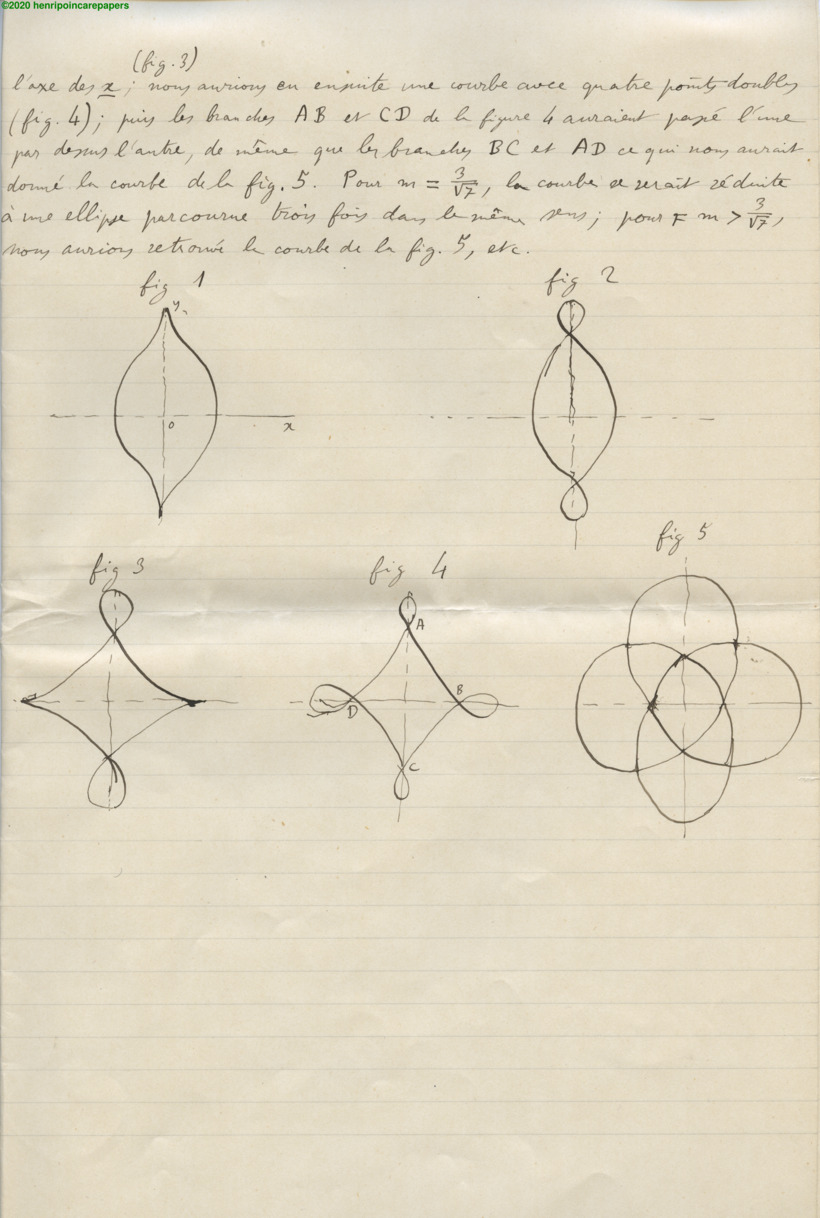 ©2020 henripoincarepapers
(fig. 3)
l'axe des x ; nous aurions eu ensuite une courbe avec quatre points doubles
(fig. 4); puis les branches AB et CD de la figure 4 auraient passé l'une
par dessus l'autre, de même que les branches BC et AD ce qui nous aurait
donné la courbe de la fig. 5. Pour m = 3/√7, la courbe se serait réduite
à une ellipse parcourue trois fois dans le même sens; pour m > 3/√7,
nous aurions retrouvé la courbe de la fig. 5, etc.
fig 1
fig 2
y
o
x
fig 5
fig 3
fig 4
A
B
D
C